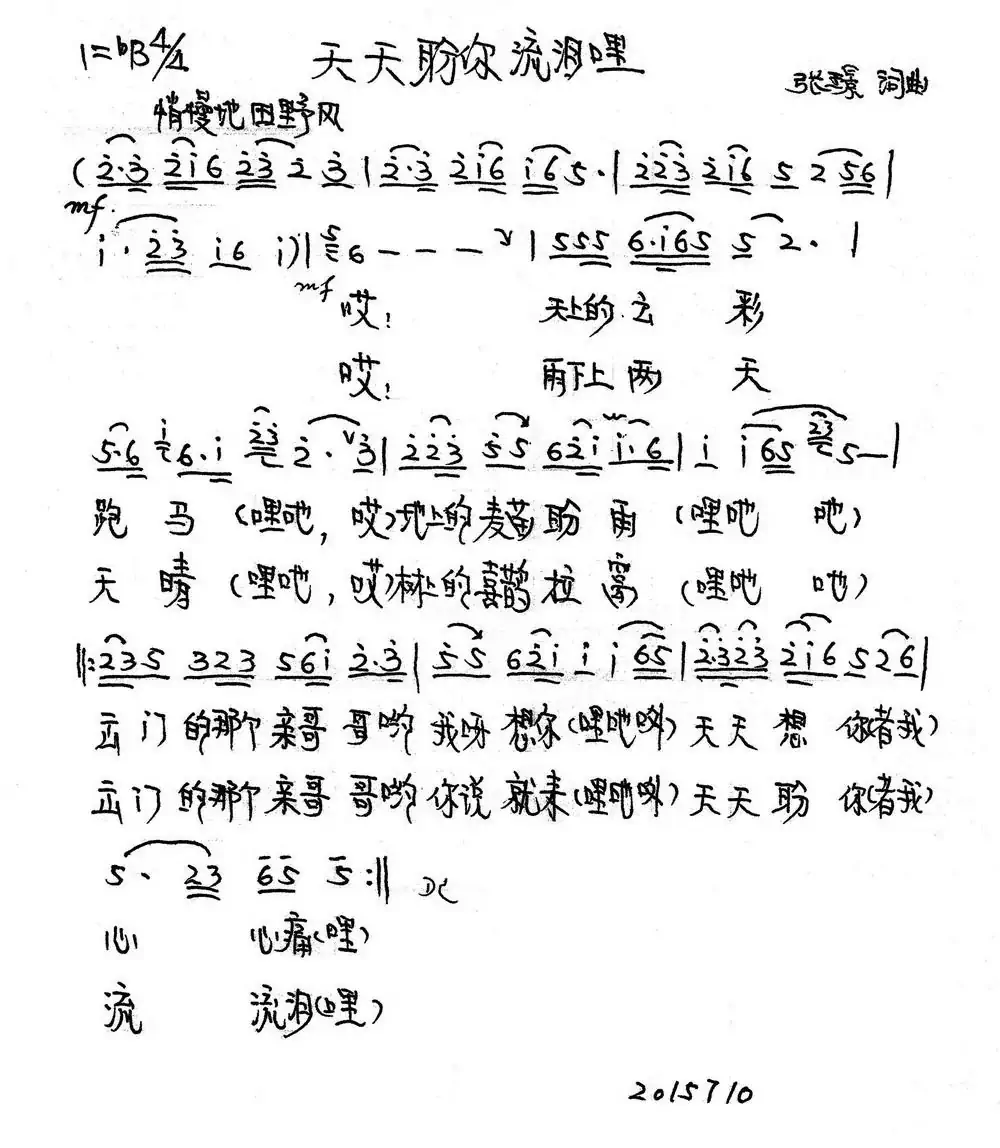 1=bB 4/4 天天盼你流泪哩
张璟 词曲
稍慢地田野风
(2·3 2i6 23 2 3|2·3 2i6 i65·|223 2i6 5 2 56|
mf.
i·23 i6 i)|5 6 - - - |555 6·i65 5 2·|
mf
哎! 天上的云 彩
哎! 雨下上两 天
5·6 i6·i 23 2·3|223 55 62i i·6|i i65 23 5-|
跑 马 (哩吔,哎)地上的麦苗盼 雨 (哩吔 吔)
天 晴 (哩吔,哎)林上的喜鹊拉 窝 (哩吔 吔)
||:235 323 56i 2·3|55 62i i i65|2·323 2i6 526|
出门的那个亲哥 哥哟 我呀想你(哩吔哟)天天 想 你(者我)
出门的那个亲哥 哥哟 你说就来(哩吔哟)天天 盼 你(者我)
5· 23 65 5:|| DC
心 心痛(哩)
流 流泪(哩)
2015 7 10